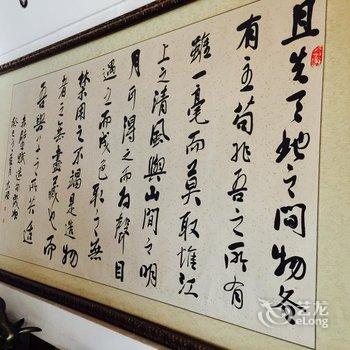 且夫天地之間物各
有主苟非吾之所有
雖一毫而莫取惟江
上之清風與山間之明
月耳得之而為聲目
遇之而成色取之無
禁用之不竭是造物
者之無盡藏也而
吾與子之所共適
艺龙
eLong